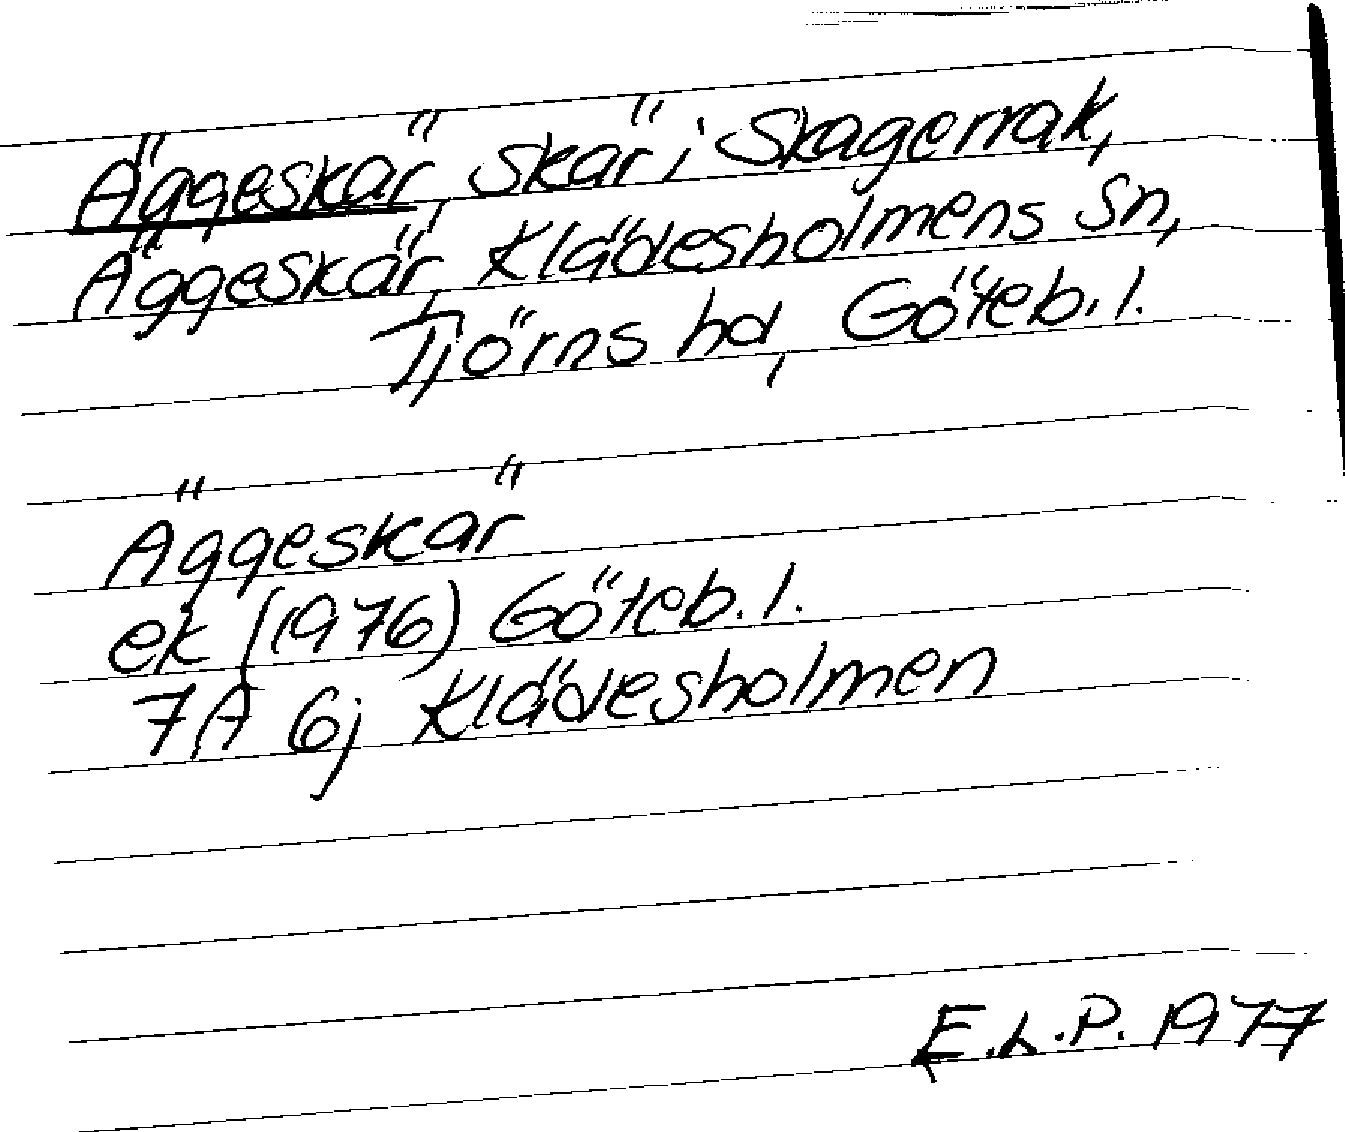 Äggeskär, skär i Skagerrak,
Äggeskär, Klädesholmens sn,
Tjörns hd, Göteb. l.
Äggeskär
ek (1976) Göteb. l.
7A 6j Klädesholmen
E.L.P. 1977